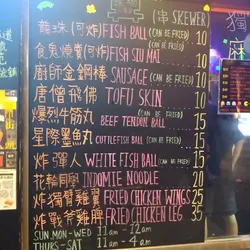 (串 SKEWER)
龍珠 (可炸) FISH BALL (CAN BE FRIED) 10
食鬼燒賣 (可炸) FISH SIU MAI (CAN BE FRIED) 10
廚師金鋼棒 SAUSAGE (CAN BE FRIED) 10
唐僧飛佛 TOFU SKIN 10
爆烈牛筋丸 BEEF TENDON BALL (CAN BE FRIED) 15
星際墨魚丸 CUTTLEFISH BALL (CAN BE FRIED) 15
炸彈人 WHITE FISH BALL (CAN BE FRIED) 15
花輪同學 INDOMIE NOODLE 20
炸獨臂雞翼 FRIED CHICKEN WINGS 25
炸戰斧雞髀 FRIED CHICKEN LEG 35
SUN.MON-WED 11am - 12am
THURS-SAT 11am - 4am